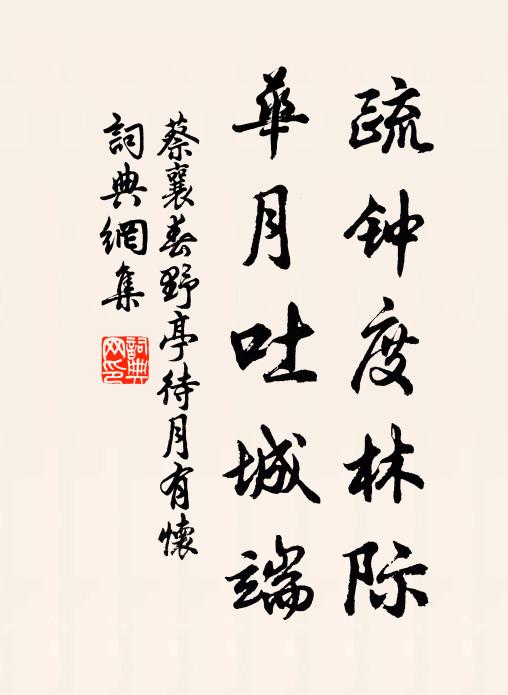 疏钟度林际
華月吐城端
蔡襄春野亭待月有懷
詞典網集
詞典網印